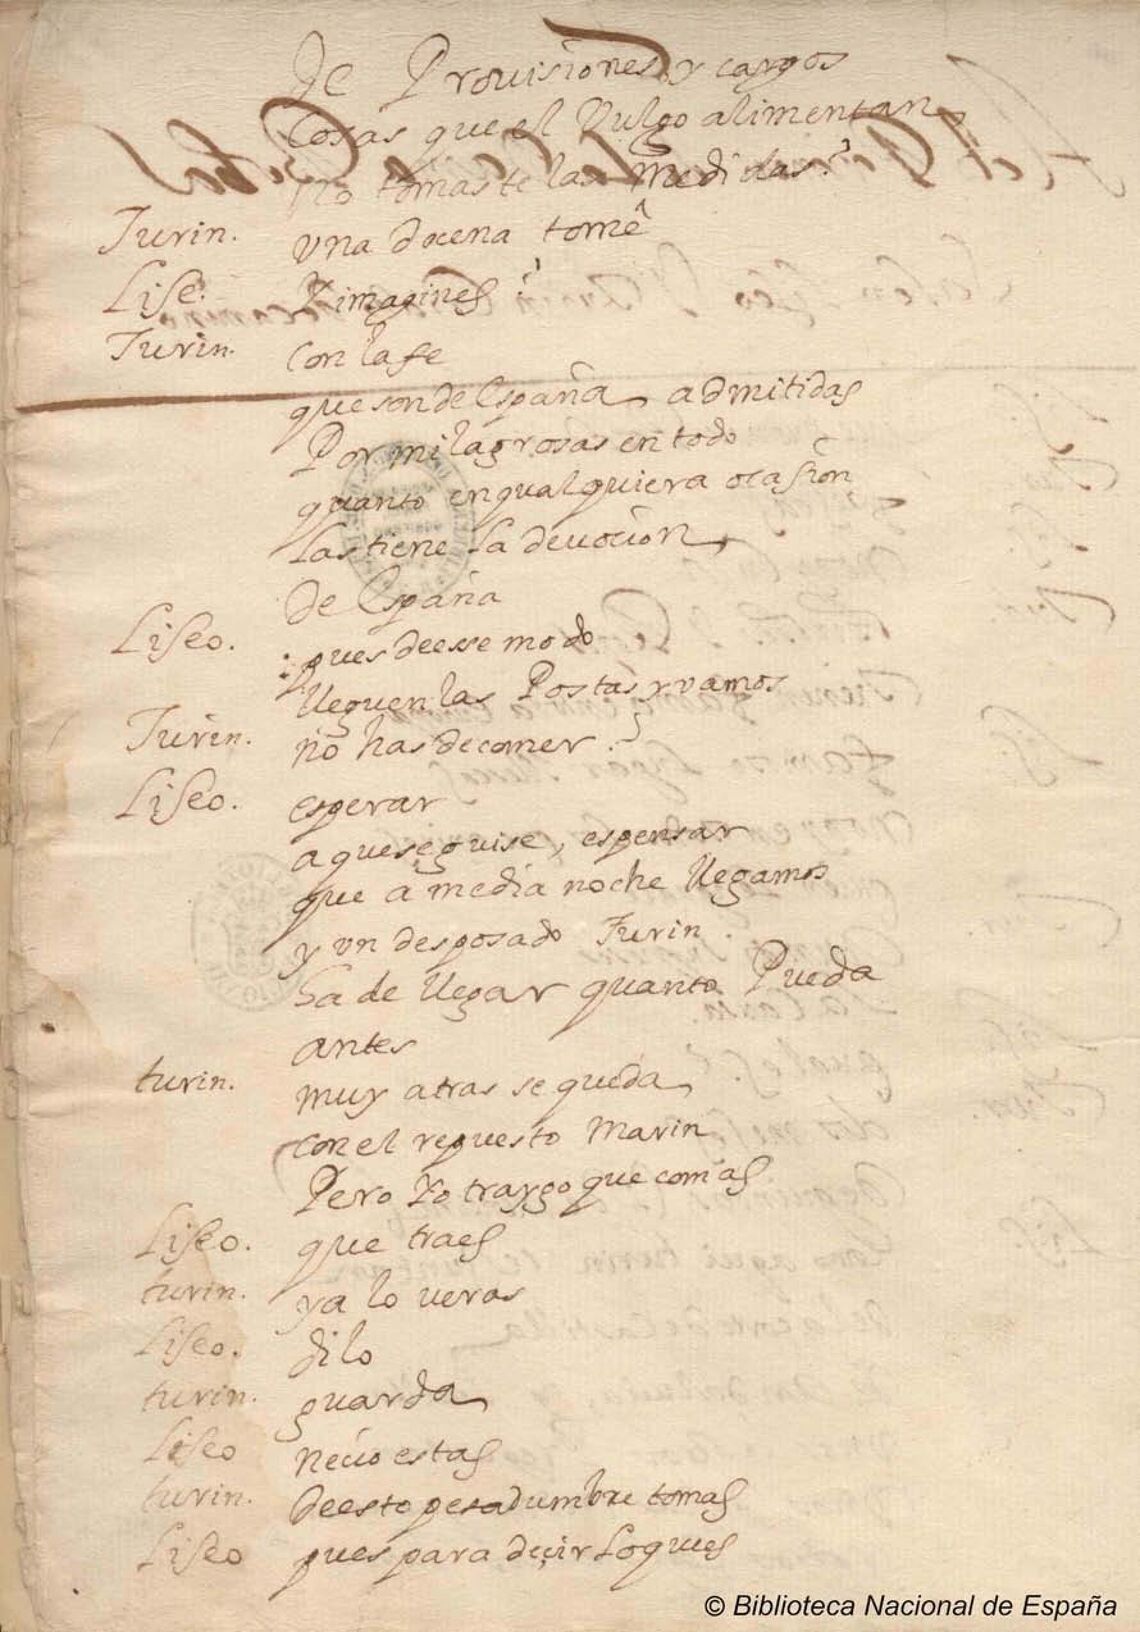 de Provisiones y cargos
cosas que el Vulgo alimentan
no tomaste las medidas?
Turin. una docena tomê
Lise. Y imagines?
Turin. con la fe
que son de España admitidas
Por milagrosas en todo
quanto en qualquiera ocasion
las tiene la deuocion
de España
Liseo. pues de esse modo
lleguen las Postas y vamos
Turin. no has de comer?
Liseo. esperar
a que se guise, es pensar
que a media noche llegamos
y vn desposado Turin
ha de llegar quanto Pueda
antes
turin. muy atras se queda
con el repuesto Marin
Pero Yo traygo que comas
Liseo. que traes
turin. ya lo veras
Liseo. dilo
turin. guarda
Liseo necio estas
turin. de esto pesadumbre tomas
Liseo pues para decir lo ques
© Biblioteca Nacional de España